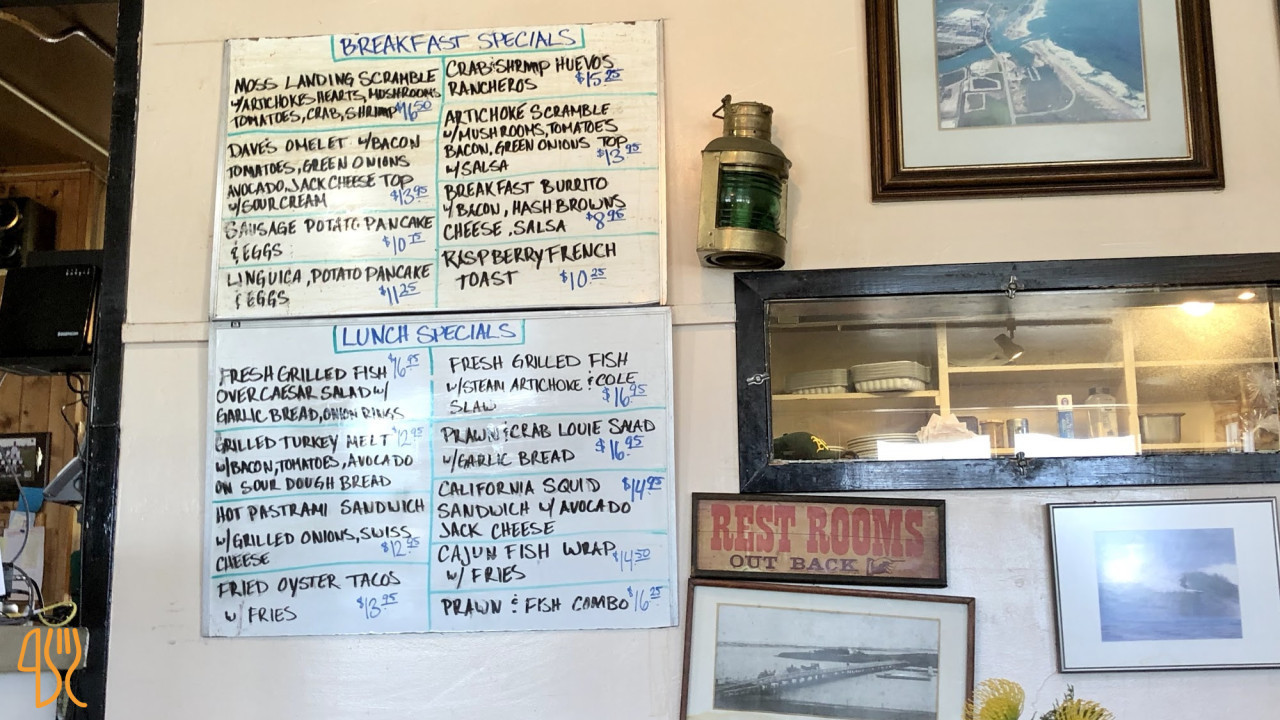 BREAKFAST SPECIALS
MOSS LANDING SCRAMBLE
W/ARTICHOKES HEARTS, MUSHROOMS
TOMATOES, CRAB, SHRIMP $16.50
DAVE'S OMELET W/BACON
TOMATOES, GREEN ONIONS
AVOCADO, JACK CHEESE TOP
W/SOUR CREAM $13.95
SAUSAGE POTATO PANCAKE
& EGGS $10.75
LINGUICA, POTATO PANCAKE
& EGGS $11.25
CRAB & SHRIMP HUEVOS
RANCHEROS $15.25
ARTICHOKE SCRAMBLE
W/MUSHROOMS, TOMATOES
BACON, GREEN ONIONS TOP
W/SALSA $13.95
BREAKFAST BURRITO
W/BACON, HASH BROWNS
CHEESE, SALSA $8.95
RASPBERRY FRENCH
TOAST $10.25
LUNCH SPECIALS
FRESH GRILLED FISH $16.95
OVER CAESAR SALAD W/
GARLIC BREAD, ONION RINGS
GRILLED TURKEY MELT $12.95
W/BACON, TOMATOES, AVOCADO
ON SOUR DOUGH BREAD
HOT PASTRAMI SANDWICH
W/GRILLED ONIONS, SWISS
CHEESE $12.95
FRIED OYSTER TACOS
W/ FRIES $13.95
FRESH GRILLED FISH
W/STEAM ARTICHOKE & COLE
SLAW $16.95
PRAWN & CRAB LOUIE SALAD
W/GARLIC BREAD $16.95
CALIFORNIA SQUID $14.95
SANDWICH W/ AVOCADO
JACK CHEESE
CAJUN FISH WRAP $14.50
W/ FRIES
PRAWN & FISH COMBO $16.25
REST ROOMS
OUT BACK